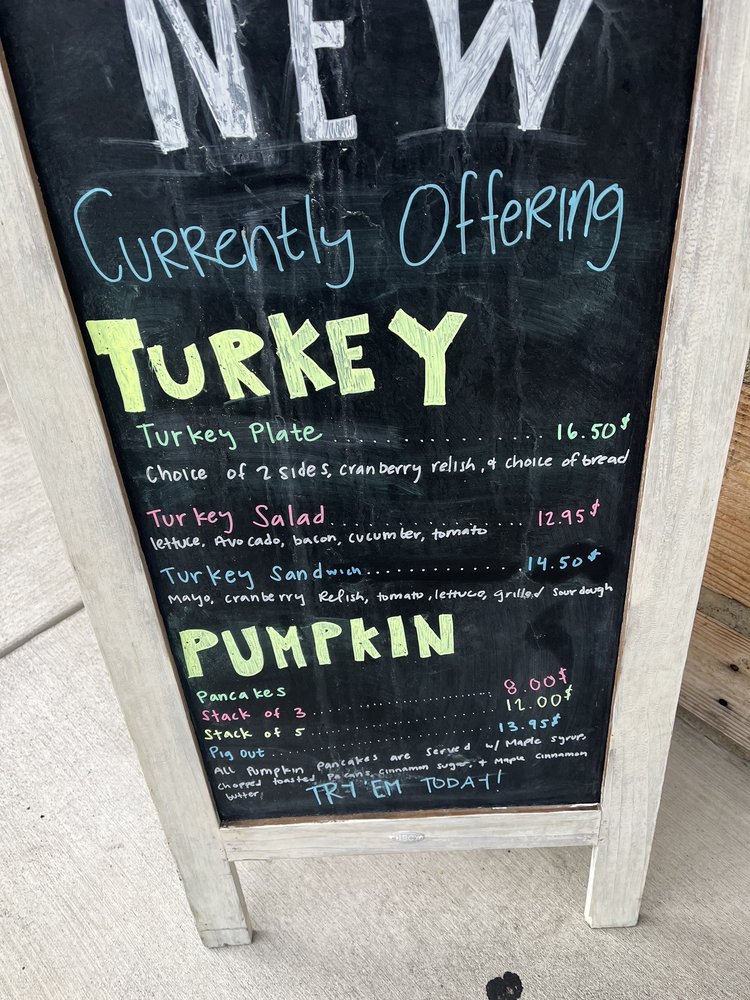 NEW
Currently Offering
TURKEY
Turkey Plate .................. 16.50$
Choice of 2 sides, cranberry relish, & choice of bread
Turkey Salad .................. 12.95$
lettuce, Avocado, bacon, cucumber, tomato
Turkey Sandwich .................. 14.50$
Mayo, cranberry Relish, tomato, lettuce, grilled sourdough
PUMPKIN
Pancakes .................. 8.00$
Stack of 3 .................. 12.00$
Stack of 5 .................. 13.95$
Pig Out
All Pumpkin pancakes are served w/ Maple syrup,
chopped toasted Pecans, cinnamon sugar & Maple cinnamon
butter!
TRY 'EM TODAY!